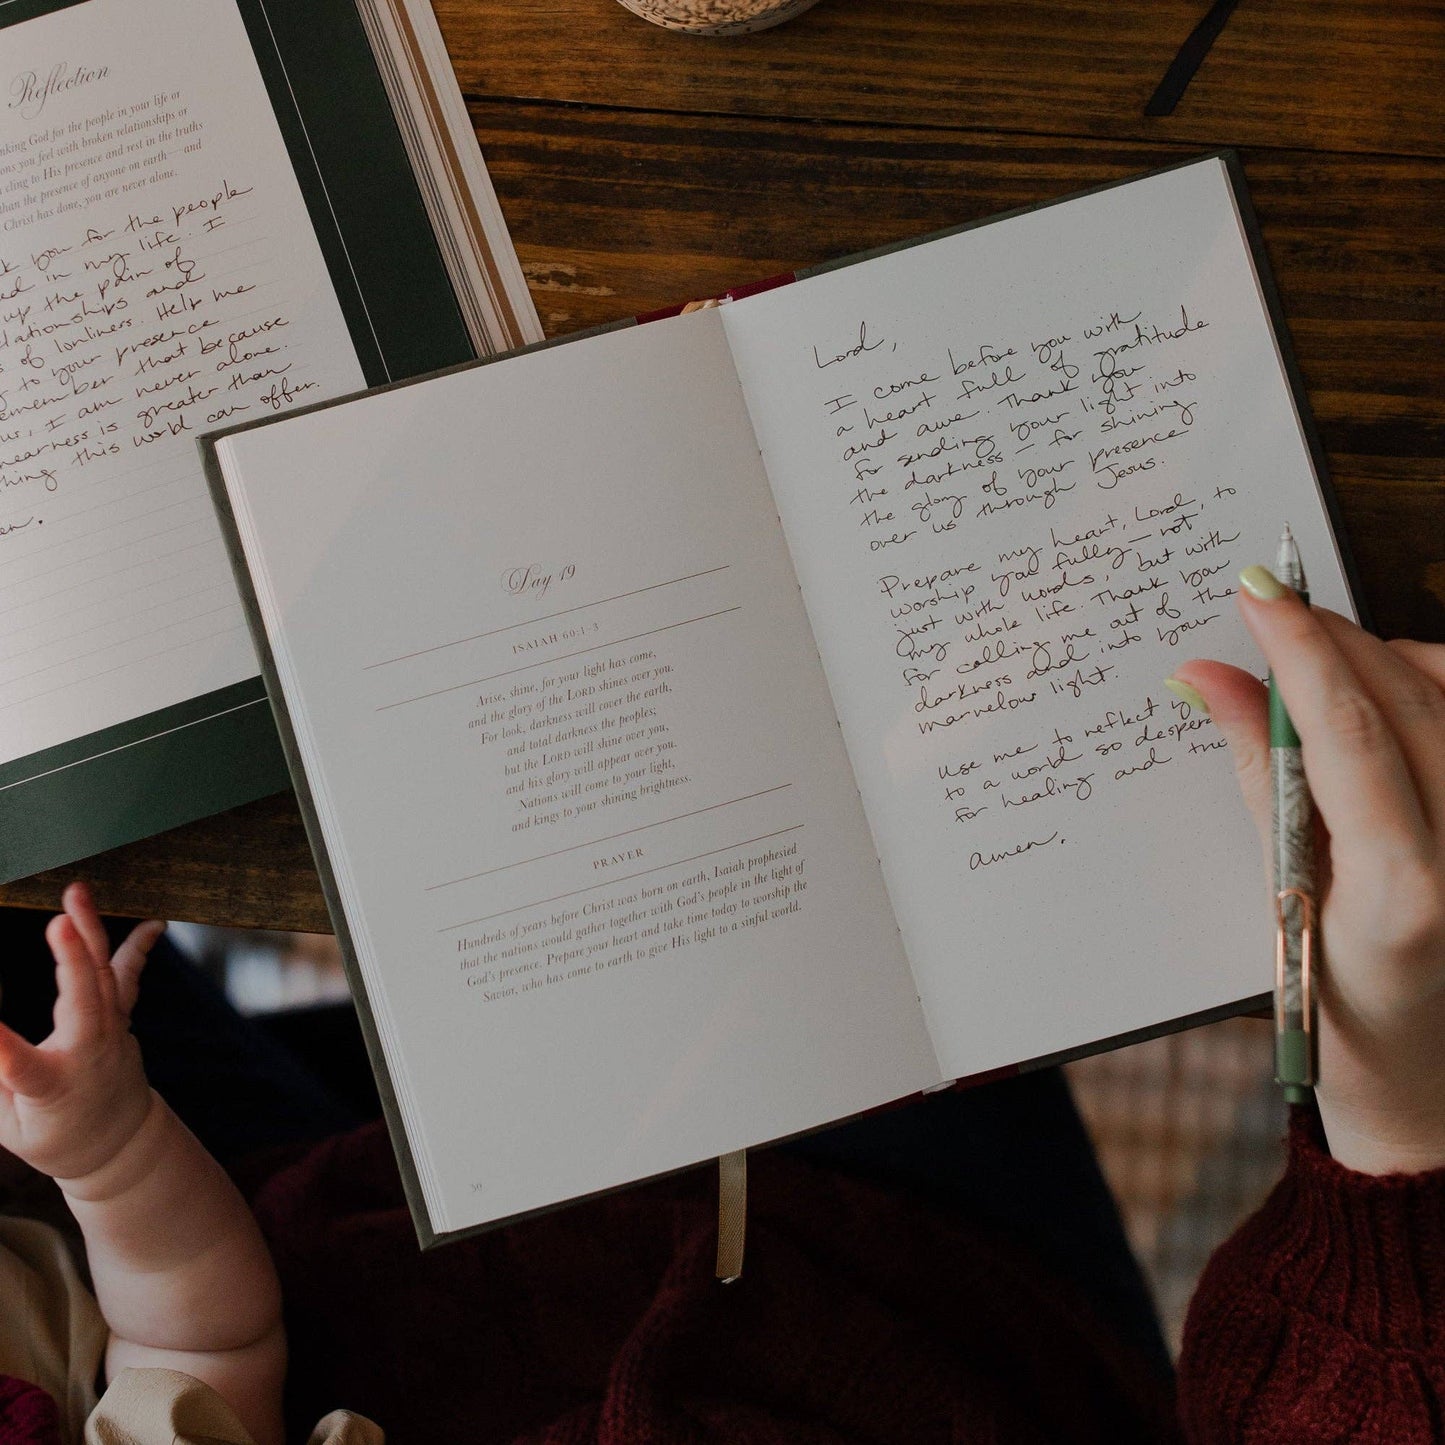 Reflection
nking God for the people in your life or
ons you feel with broken relationships or
cling to His presence and rest in the truths
than the presence of anyone on earth—and
Christ has done, you are never alone.
k you for the people
ed in my life. I
up the pain of
elationships and
s of lonliness. Help me
g to your presence
emember that because
us, I am never alone.
nearness is greater than
thing this world can offer.
en.
Day 19
ISAIAH 60:1-3
Arise, shine, for your light has come,
and the glory of the LORD shines over you.
For look, darkness will cover the earth,
and total darkness the peoples;
but the LORD will shine over you,
and his glory will appear over you.
Nations will come to your light,
and kings to your shining brightness.
PRAYER
Hundreds of years before Christ was born on earth, Isaiah prophesied
that the nations would gather together with God's people in the light of
God's presence. Prepare your heart and take time today to worship the
Savior, who has come to earth to give His light to a sinful world.
Lord,
I come before you with
a heart full of gratitude
and awe. Thank you
for sending your light into
the darkness — for shining
the glory of your presence
over us through Jesus.
Prepare my heart, Lord, to
worship you fully — not
just with words, but with
my whole life. Thank you
for calling me out of the
darkness and into your
marvelous light.
Use me to reflect y
to a world so despera
for healing and tru
amen.